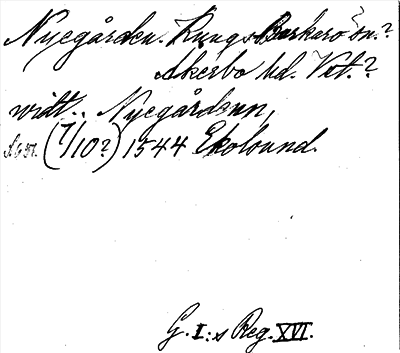 Nyegården. Kungs-Barkarö sn.?
Åkerbo hd. Vstm.?
widt.. Nyegårdenn,
(7/10?) 1544 Ekolsund.
G. I:s Reg. XVI.